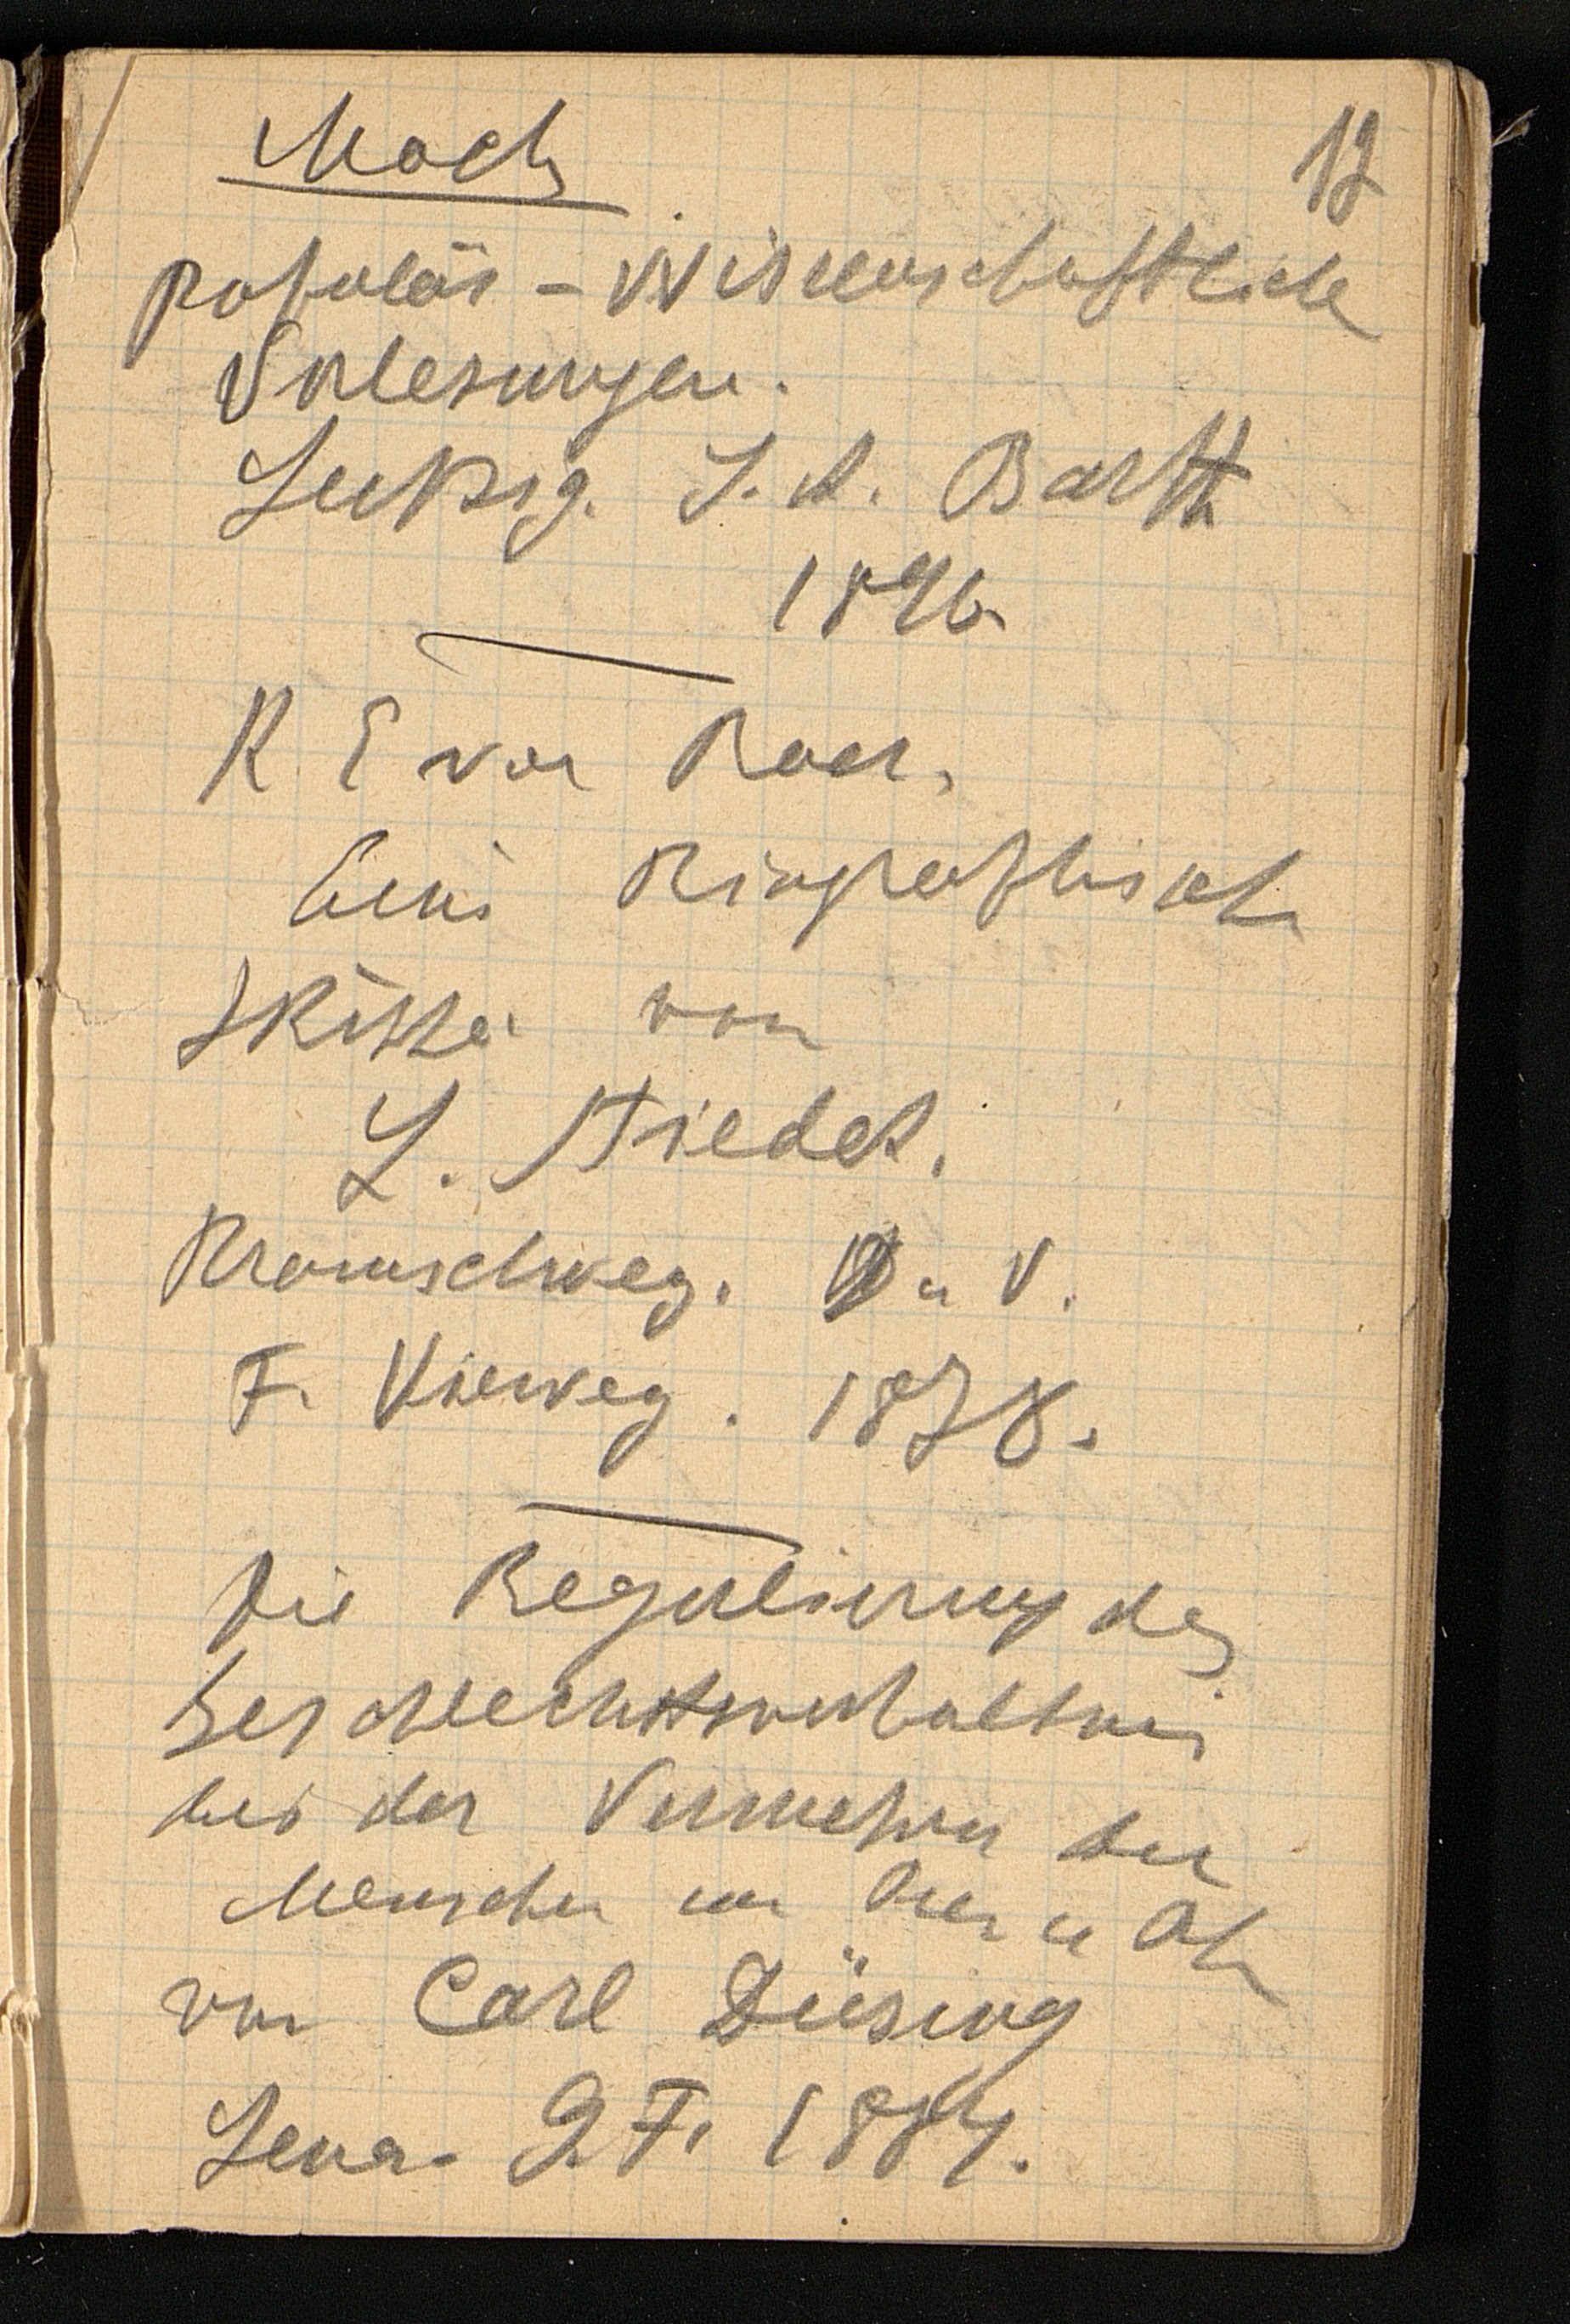 Mach
12
populär-Wissenschaftliche
Vorlesungen.
Leipzig. J. A. Barth
1896.
K E von Baer.
Eine Biographische
Skizze von
L. Stieda.
Braunschweig. D u V.
F. Vieweg. 1878.
Die Regulierung des
Geschlechtsverhältnis
bei der Vermehrung der
Menschen
von Carl Düsing
Jena. G. F. 1884.